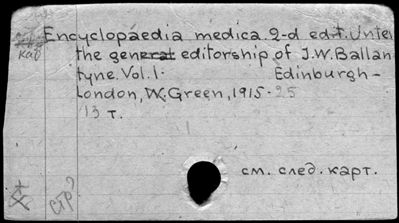 Encyclopaedia medica. 2-d edit. Unter
the general editorship of J.W. Ballan
tyne. Vol. 1. Edinburgh -
London, W. Green, 1915-25
13 т.
см. след. карт.